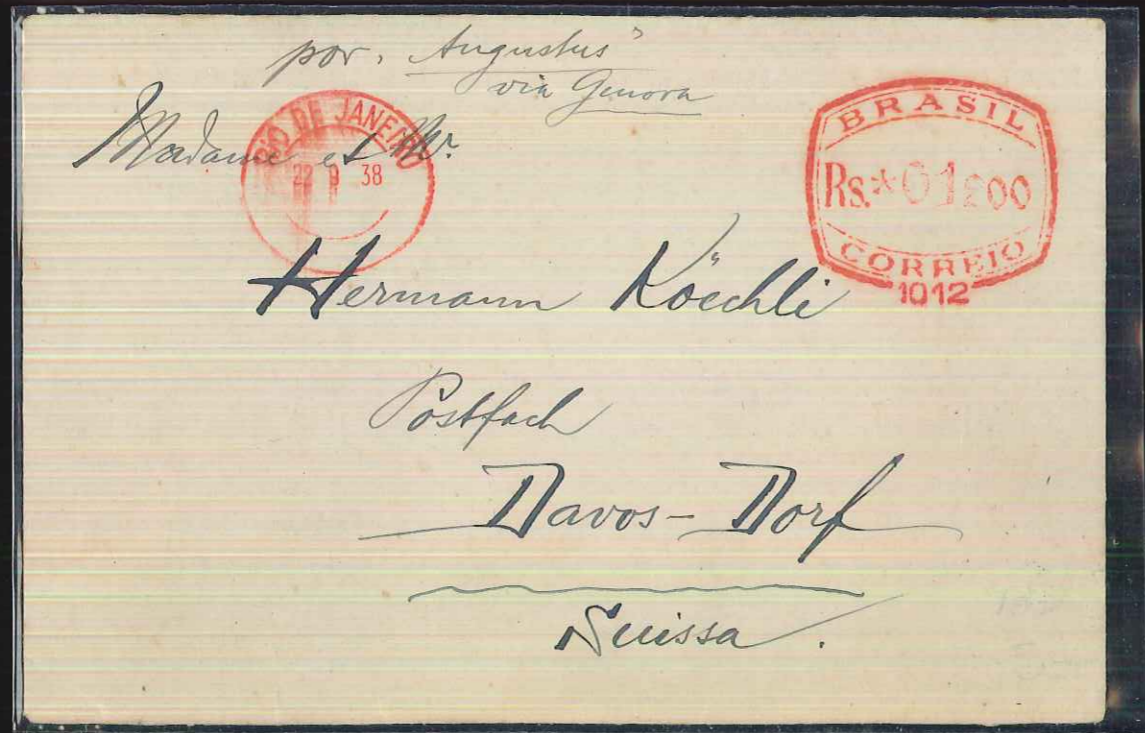 por. "Augustus"
via Genova
Madame et Mr.
RIO DE JANEIRO
22 9 38
BRASIL
Rs.*01200
CORREIO
1012
Hermann Köechli
Postfach
Davos-Dorf
Suissa.